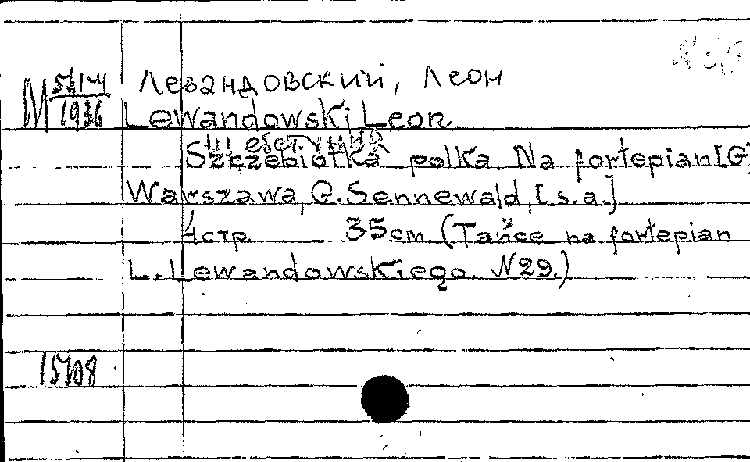 Левандовский, Леон
М 1936
Lewandowski Leon
Szczebiotka polka Na fortepian [G]
Warszawa, G. Sennewald, [s.a.]
4 стр. 35 cm (Tańce na fortepian
L. Lewandowskiego. N29.)
15708